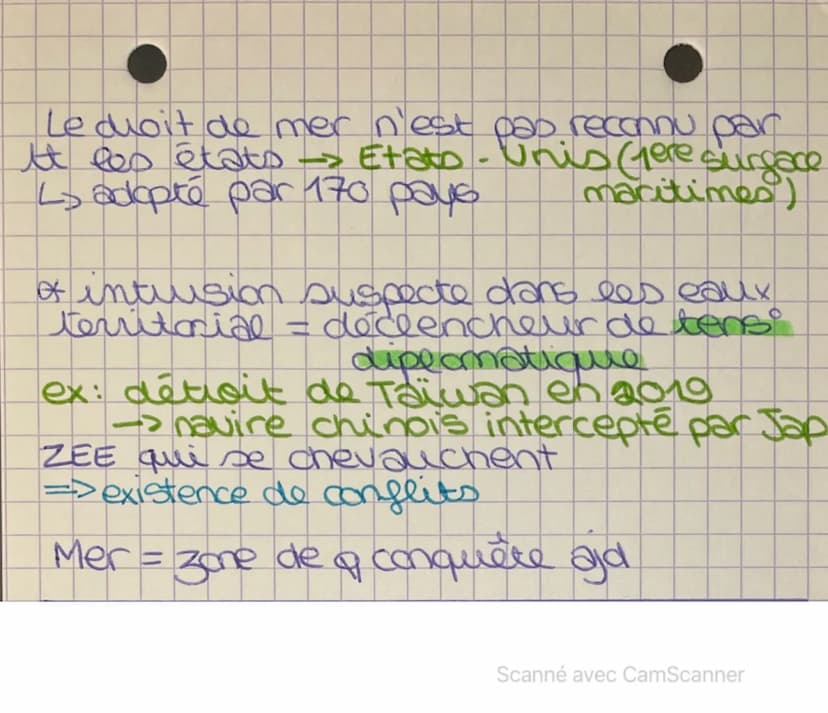 Le droit de mer n'est pas reconnu par
tt les états → Etats-Unis (1ere surface
↳ adopté par 170 pays maritimes)
intrusion suspecte dans les eaux
territorial = déclencheur de tens°
diplomatique
ex: détroit de Taïwan en 2019
→ navire chinois intercepté par Jap
ZEE qui se chevauchent
=> existence de conflits
Mer = zone de conquête ajd
Scanné avec CamScanner